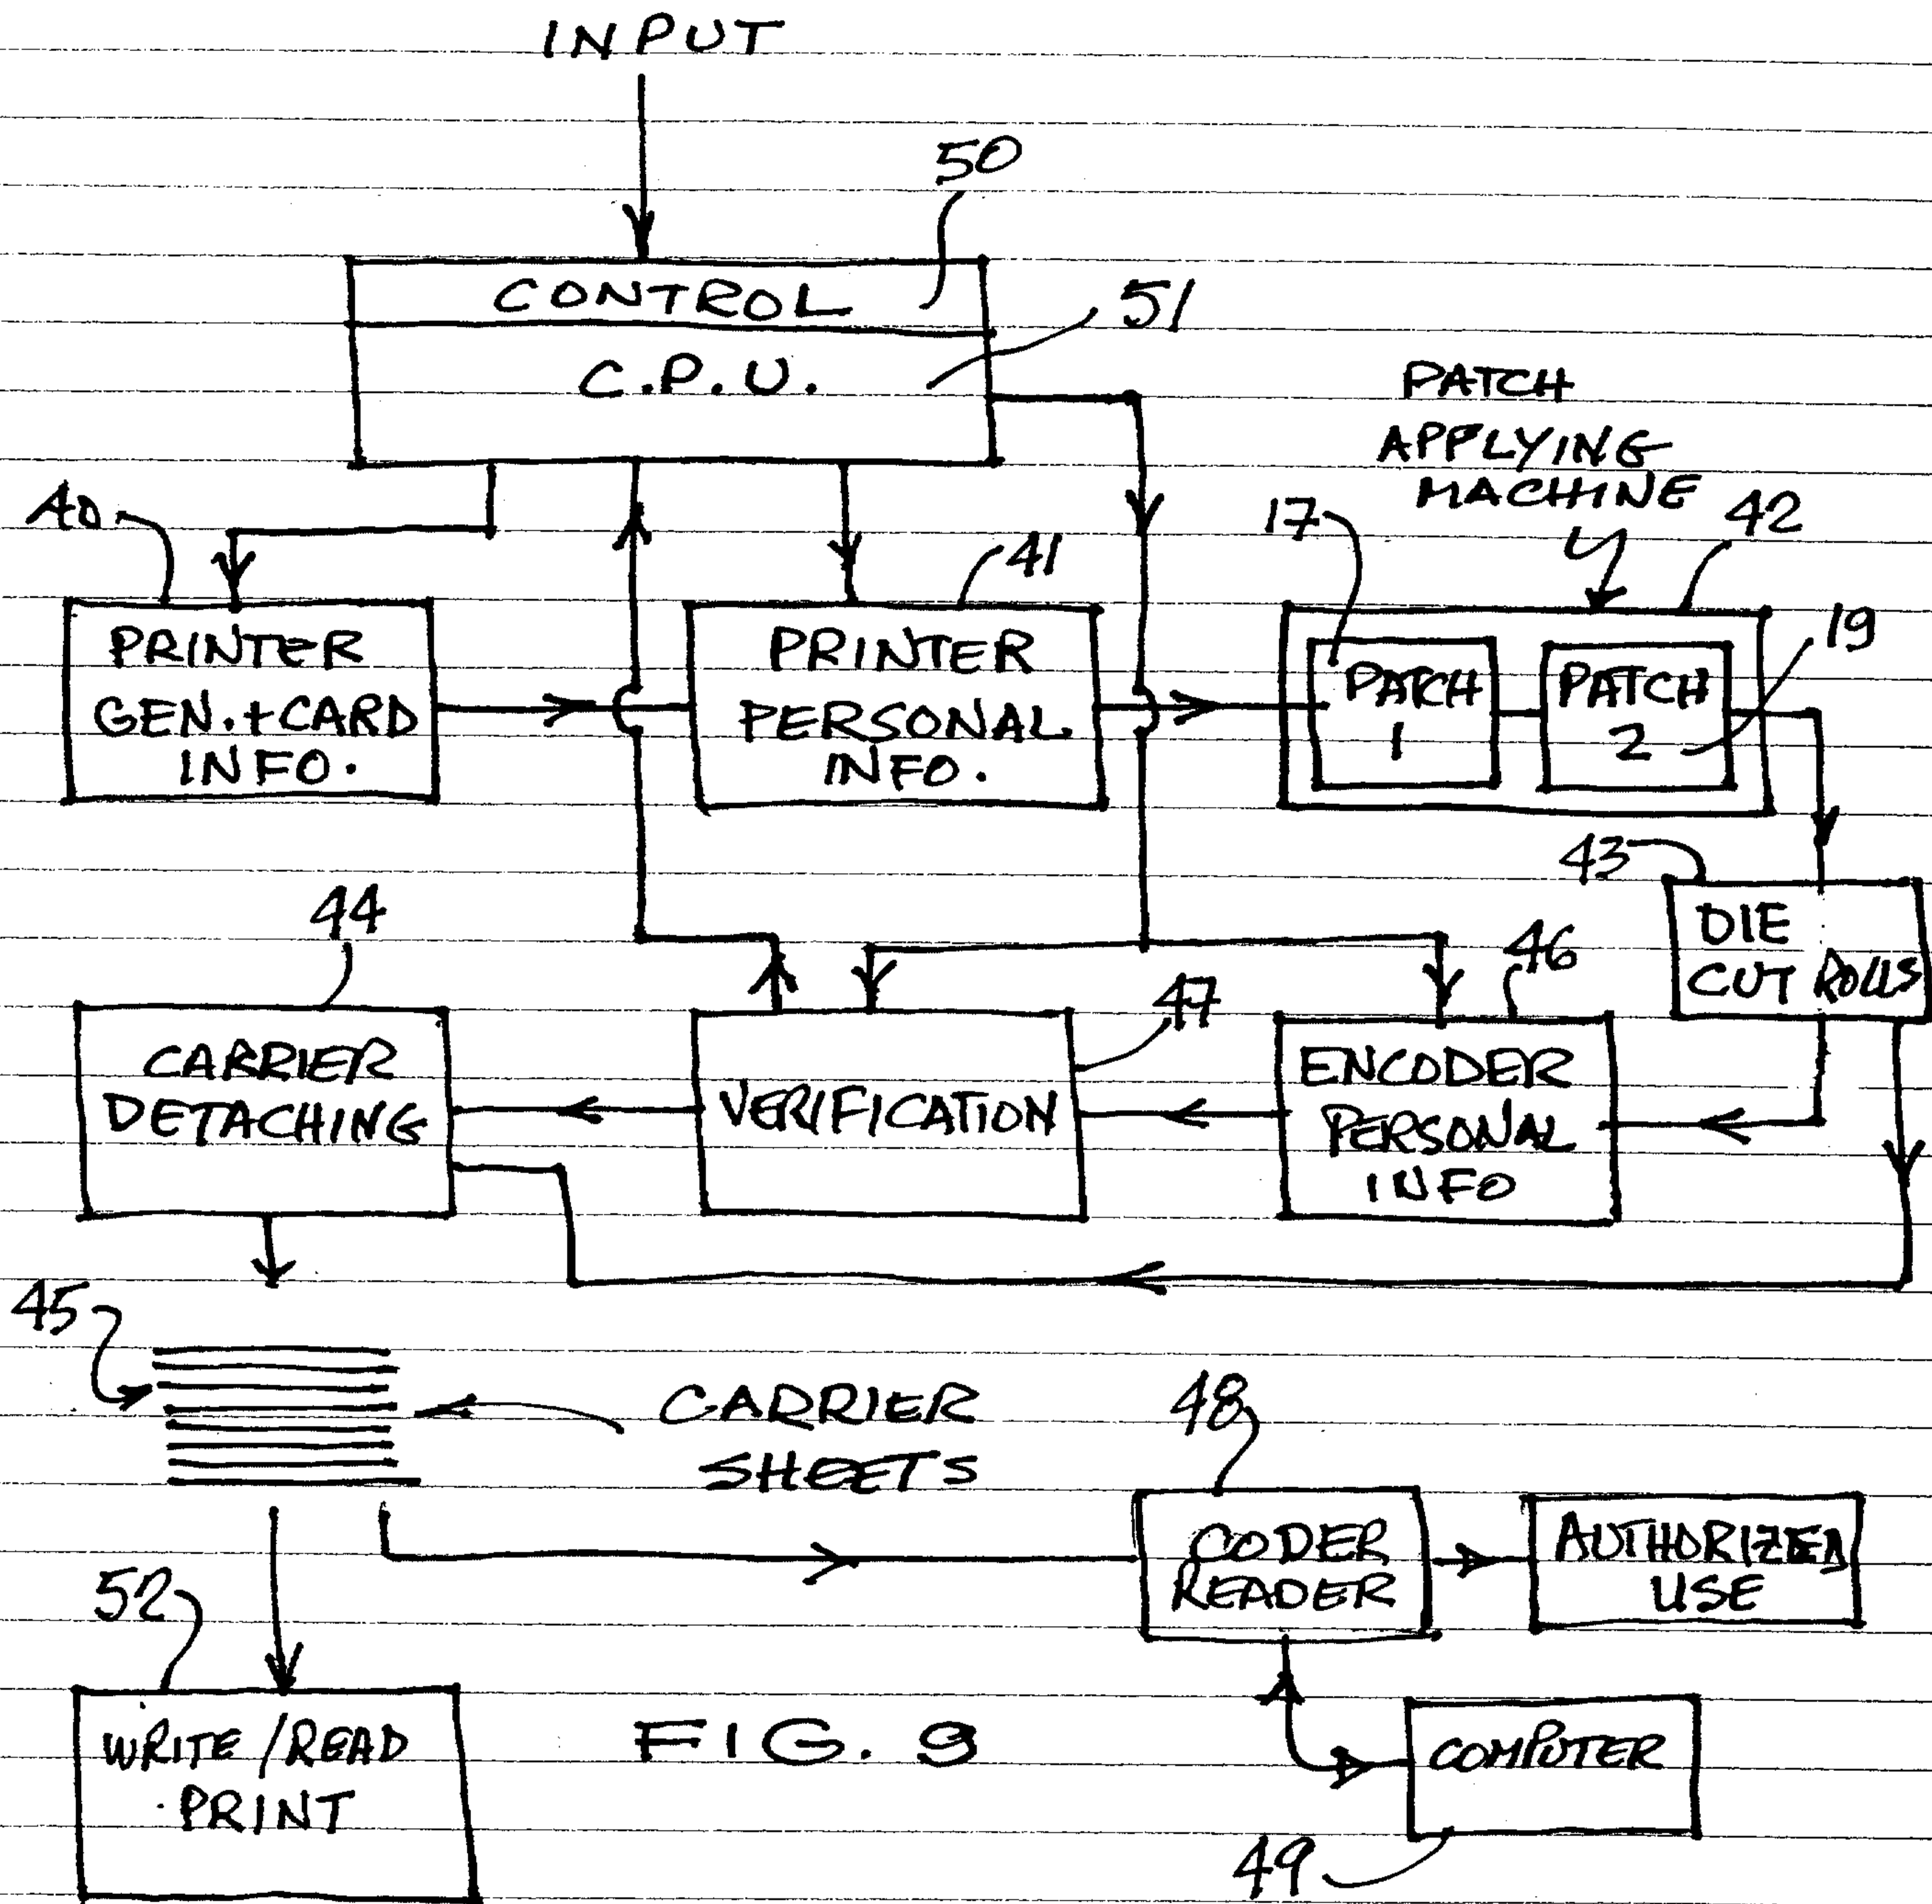 INPUT
50
CONTROL
51
C.P.U.
PATCH
APPLYING
MACHINE
40
41
17
42
19
PRINTER
GEN.+CARD
INFO.
PRINTER
PERSONAL
INFO.
PATCH
1
PATCH
2
43
DIE
CUT ROLLS
44
46
47
CARRIER
DETACHING
VERIFICATION
ENCODER
PERSONAL
INFO
45
CARRIER
SHEETS
48
CODER
READER
AUTHORIZED
USE
52
WRITE/READ
PRINT
FIG. 9
COMPUTER
49